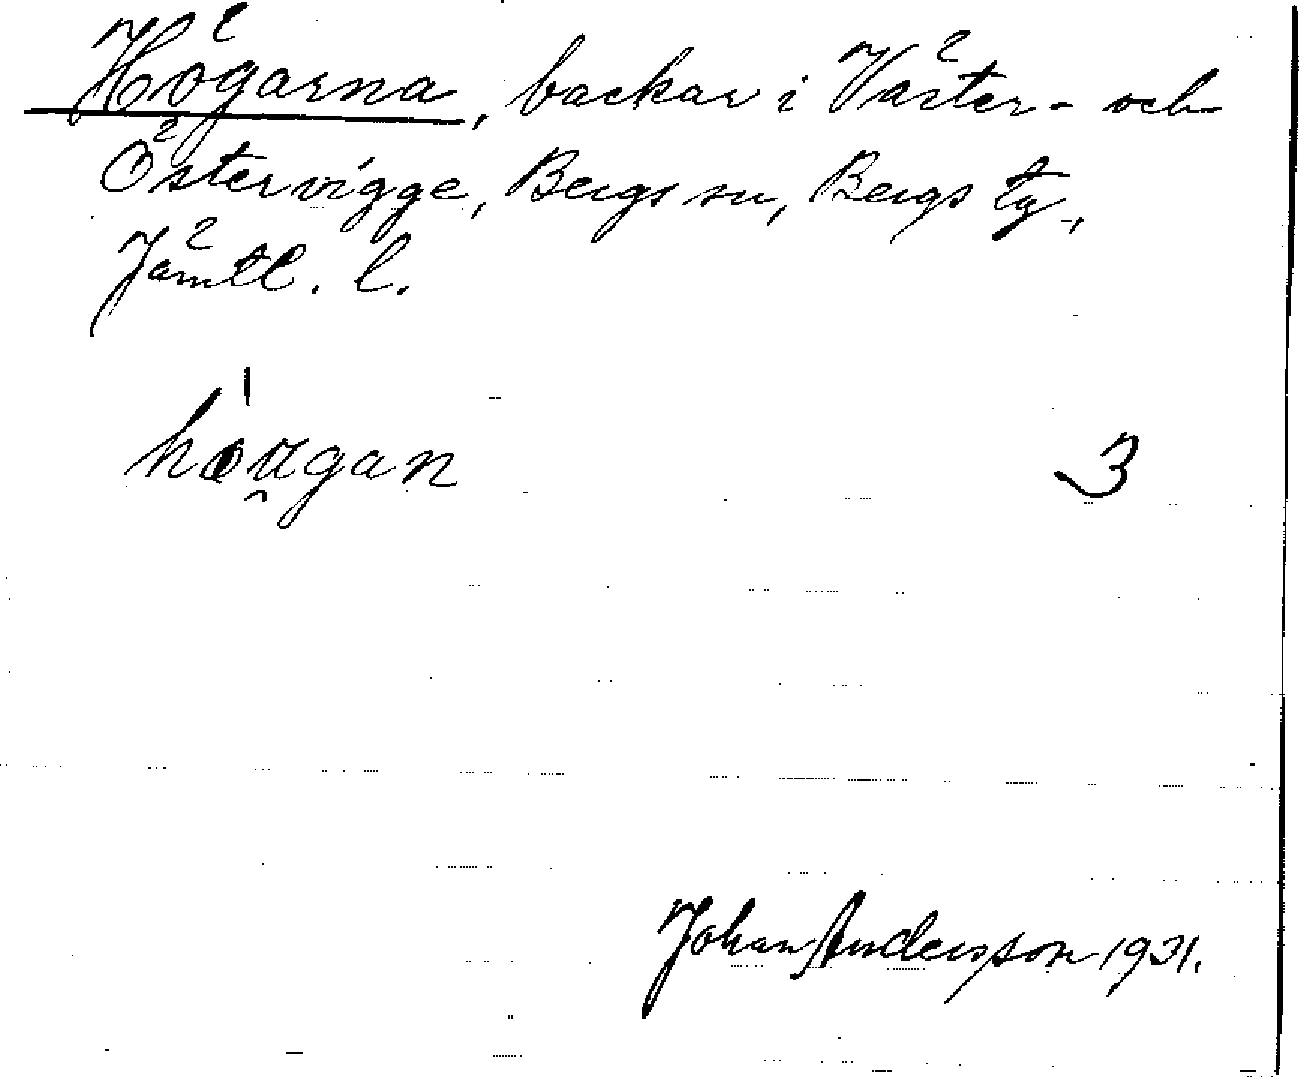 Högarna, backar i Väster- och
Östervigge, Bergs sn, Bergs tg,
Jämtl. l.
3
Johan Andersson 1931.